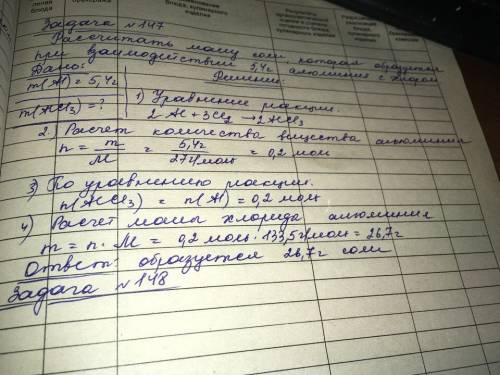 Задача №147
Рассчитать массу соли, которая образуется
при взаимодействии 5,4г алюминия с хлором
Дано:
m(Al) = 5,4г
m(AlCl3) = ?
Решение
1) Уравнение реакции.
2Al + 3Cl2 → 2AlCl3
2. Расчет количества вещества алюминия
n = m/M = 5,4г/27г/моль = 0,2 моль
3) По уравнению реакции.
n(AlCl3) = n(Al) = 0,2 моль
4) Расчет массы хлорида алюминия
m = n · M = 0,2 моль · 133,5г/моль = 26,7г
Ответ: образуется 26,7г соли
Задача №148